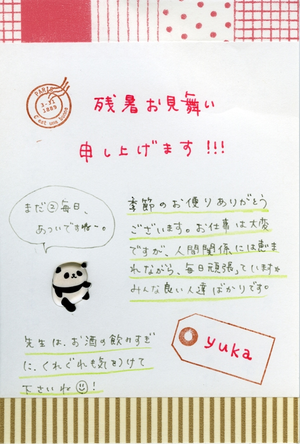 PARIS
残暑お見舞い
申し上げます!!!
まだ②毎日、
あついですねー。
季節のお便りありがとう
ございます。お仕事は大変
ですが、人間関係には恵ま
れながら、毎日頑張っています☆
みんな良い人達ばかりです。
yuka
先生は、お酒の飲みすぎ
に、くれぐれも気をつけて
下さいね☺!